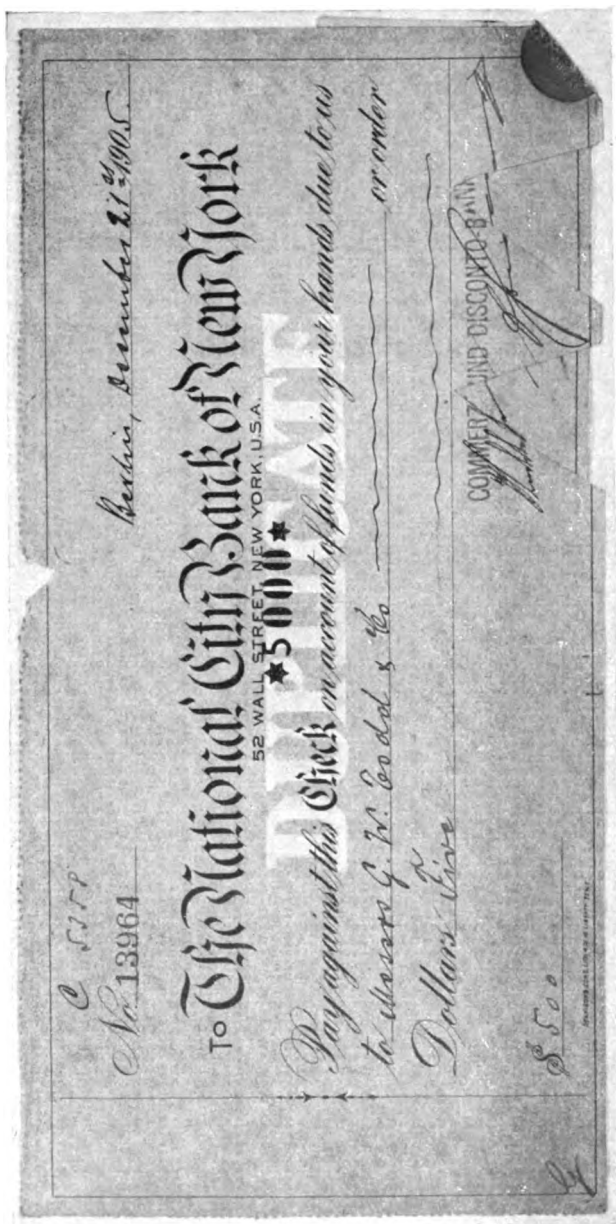 C 5358
No. 13964
Berlin, December 21st 1905.
To The National City Bank of New York
52 WALL STREET, NEW YORK, U.S.A.
DUPLICATE
*5 000*
Pay against this Check on account of funds in your hands due to us
to Messrs G. W. Codd & Co or order
Dollars Five
COMMERZ UND DISCONTO-BANK
$ 5 00